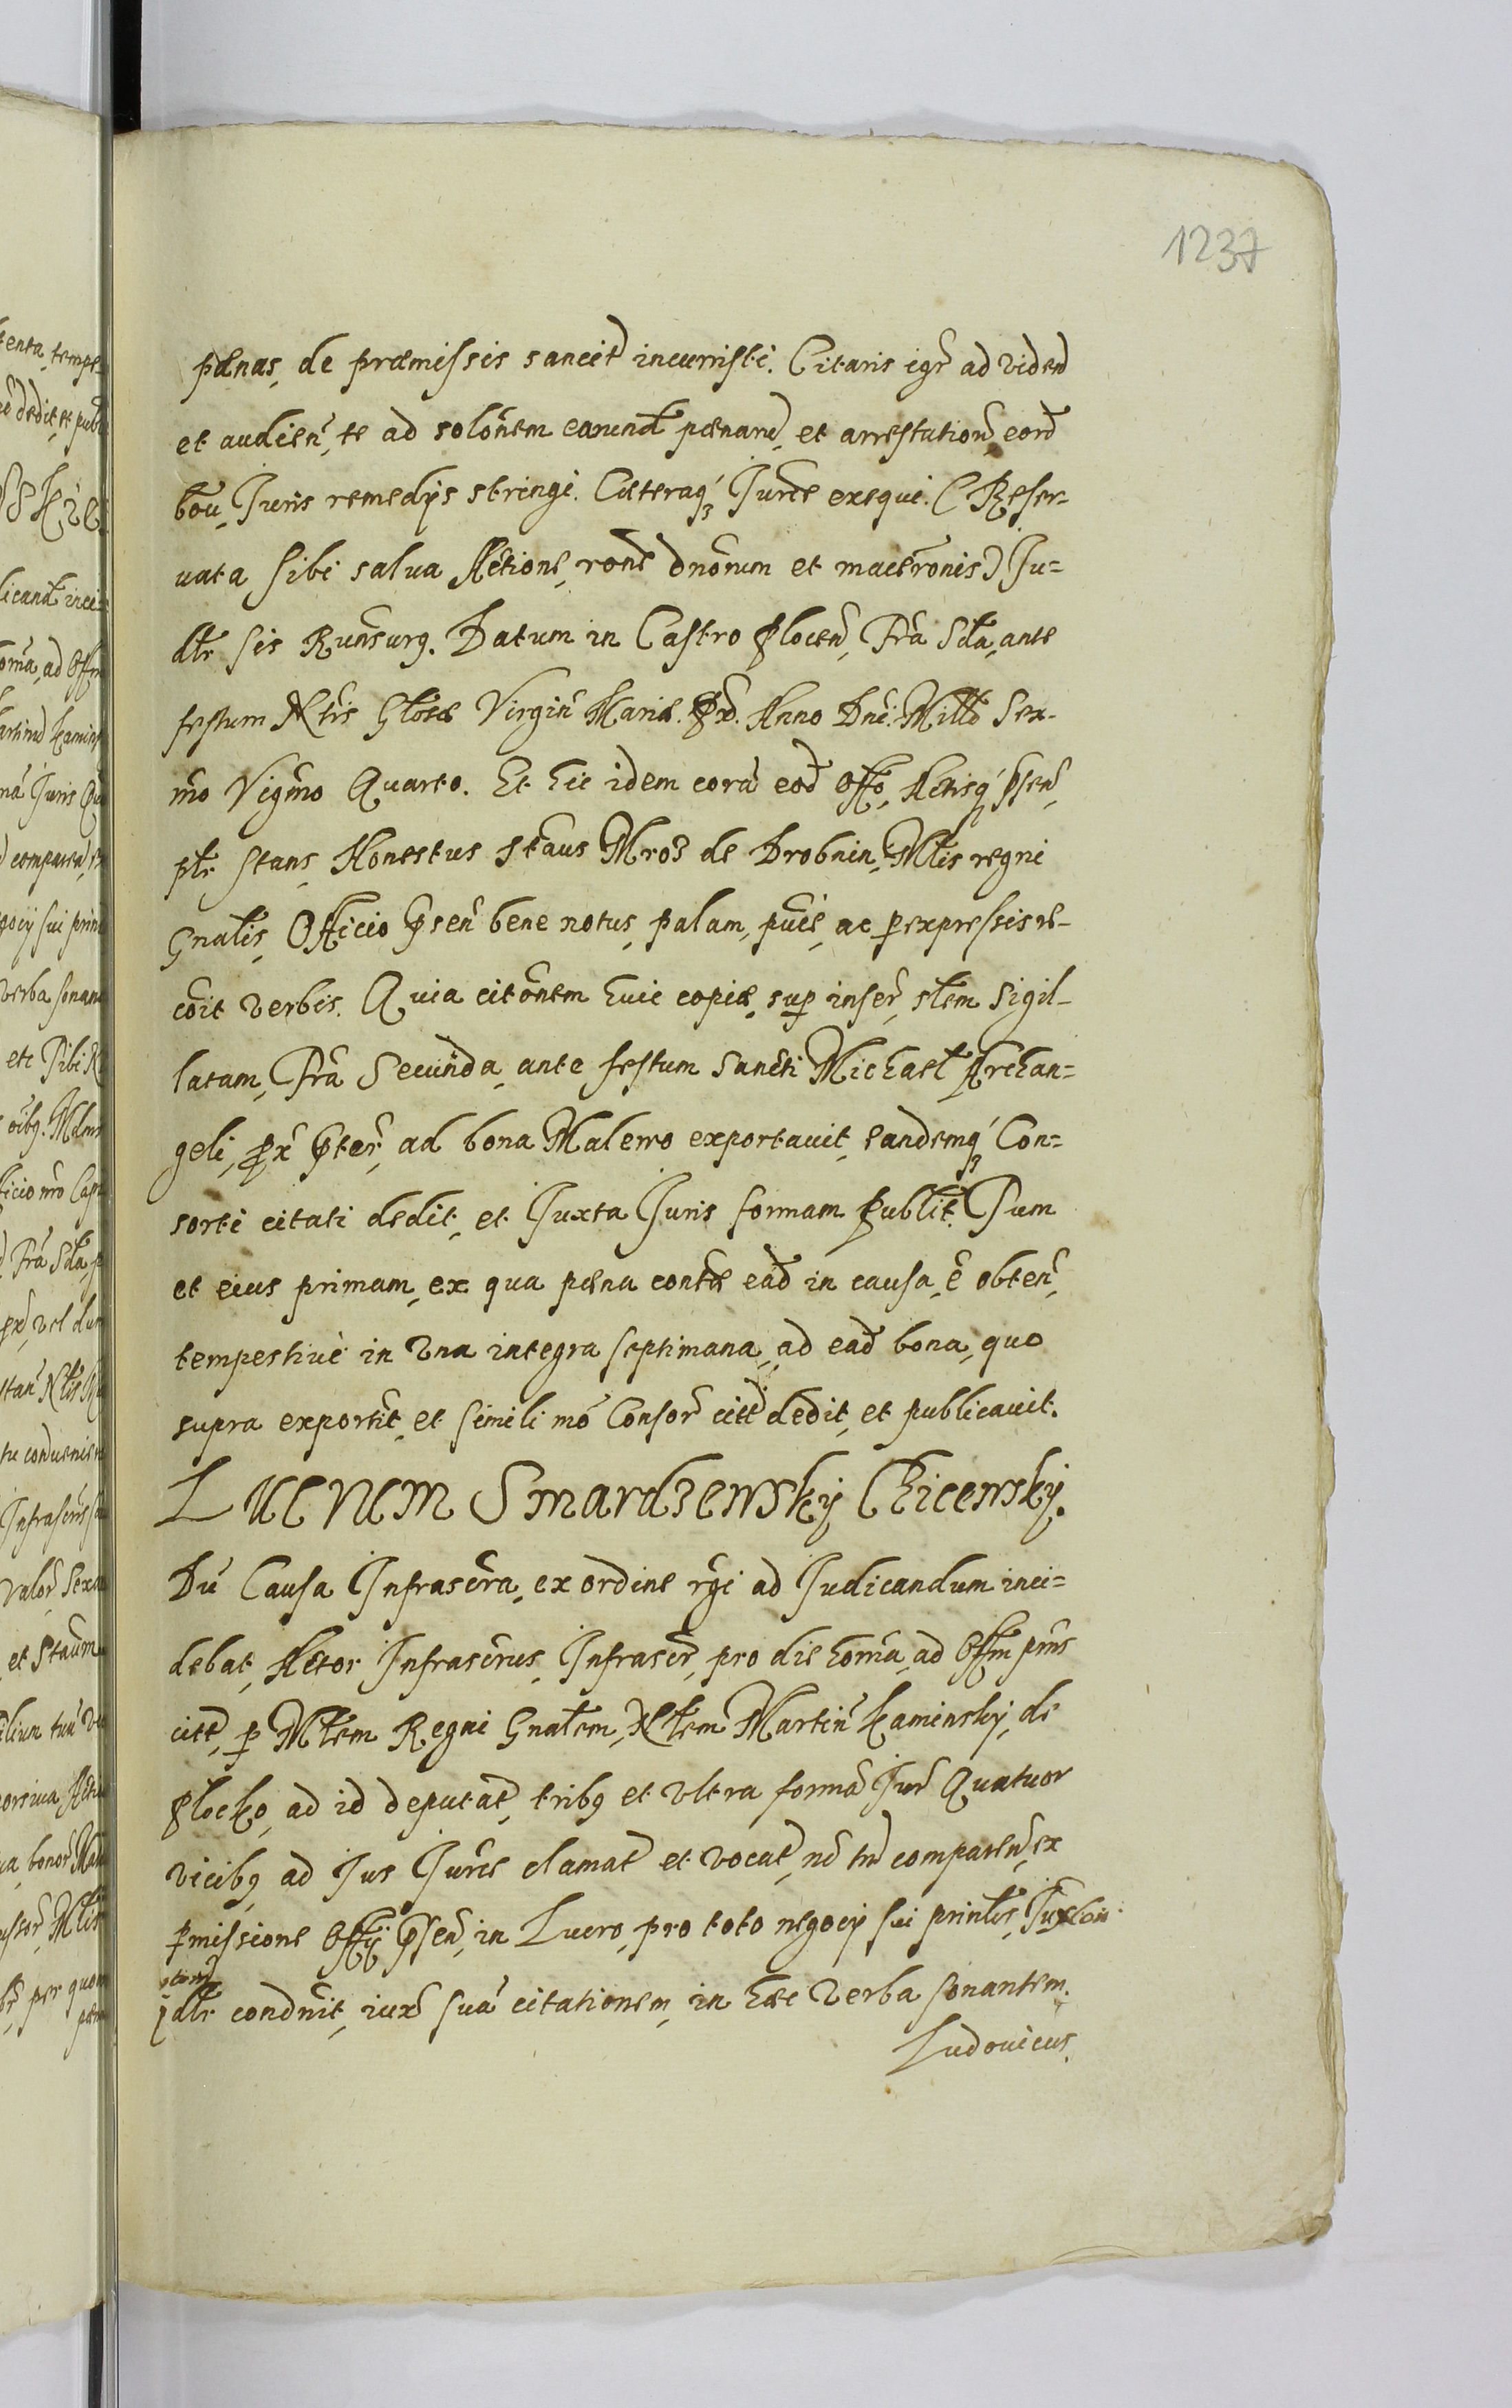 1237
pænas, de præmissis sancit incurristi. Citaris igr ad viden
et audien, te ad solonem earund pænaru, et arrestation, eord
bou, Juris remedijs stringi. Cæteraq Jurce exequi. (Reser-
uata sibi salua Actione, rone dnorum et maceronis) Ju=
dlr sis Runsurg. Datum in Castro Plocen, Fra Sda, ante
festum Ntis Glosæ Virgin Mariæ. Px. Anno Dni. Millo Sex-
mo Vigmo Quarto. Et hic idem cora eod Offo, Actisq psen,
plr stans, Honestus Staus Mroz de Drobnin, Mtis regni
Gnalis, Officio psen bene notus, palam, puce, ac p expressis re-
coit verbis. Quia citonem huic copiæ, sup inser, slem sigil-
latam, Fra Secunda, ante festum Sancti Michael Archan=
geli, px pter, ad bona Malewo exportauit, eandemq Con=
sorti citati dedit, et Juxta Juris formam Publit. Tum
et eius primam, ex qua pæna contæ ead in causa, e obten,
tempestiue in vna integra septimana, ad ead bona, quo
supra exportit, et simili mo Consor citt dedit, et publicauit.
Lucrum Smardzewsky Chicewsky.
Du Causa Infrascra, ex ordine rgi ad Judicandum inci=
debat, Actor Infrascrus, Infrascr, pro die homa, ad Offm pns
citt, p Mtem Regni Gnalem, Nlem Martin Kaminsky, de
Plocko, ad id deputat, tribq et vltra forma Jur Quatuor
vicibq ad Jus Jurce clamat et vocat, no tn comparen, ex
pmissione Offij psen, in Lucro, pro toto negocij sui prinlis,
jdlr condnit, iux sua citationem, in hæc verba sonantem.
Ludouicus.